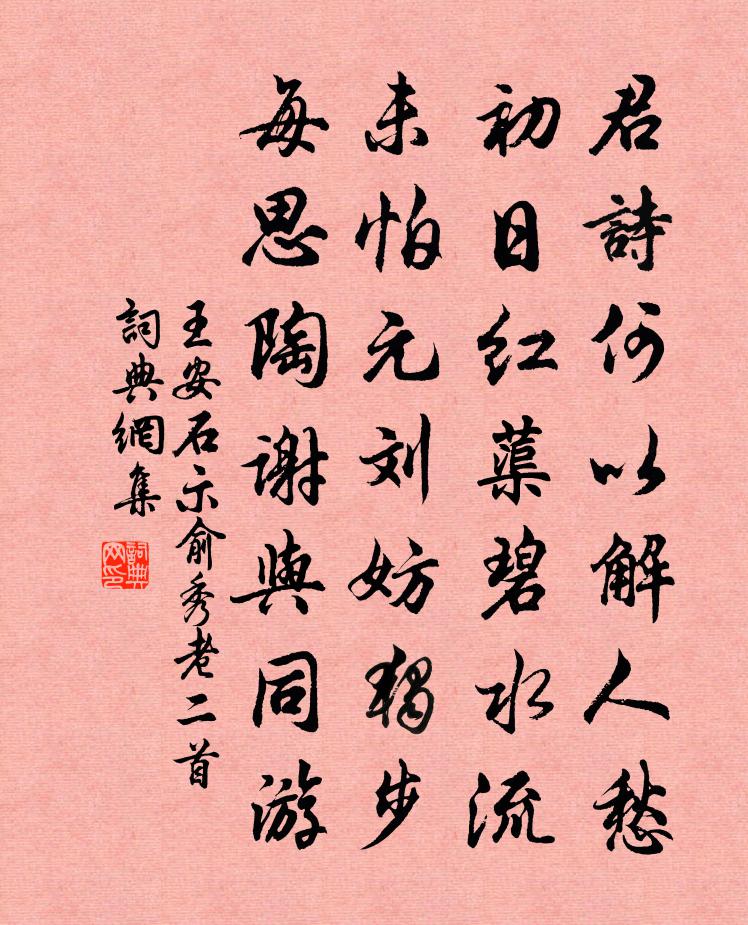 君詩何以解人愁
初日红蕖碧水流
未怕元刘妨獨步
每思陶谢與同游
王安石示俞秀老二首
詞典網集
詞典网印